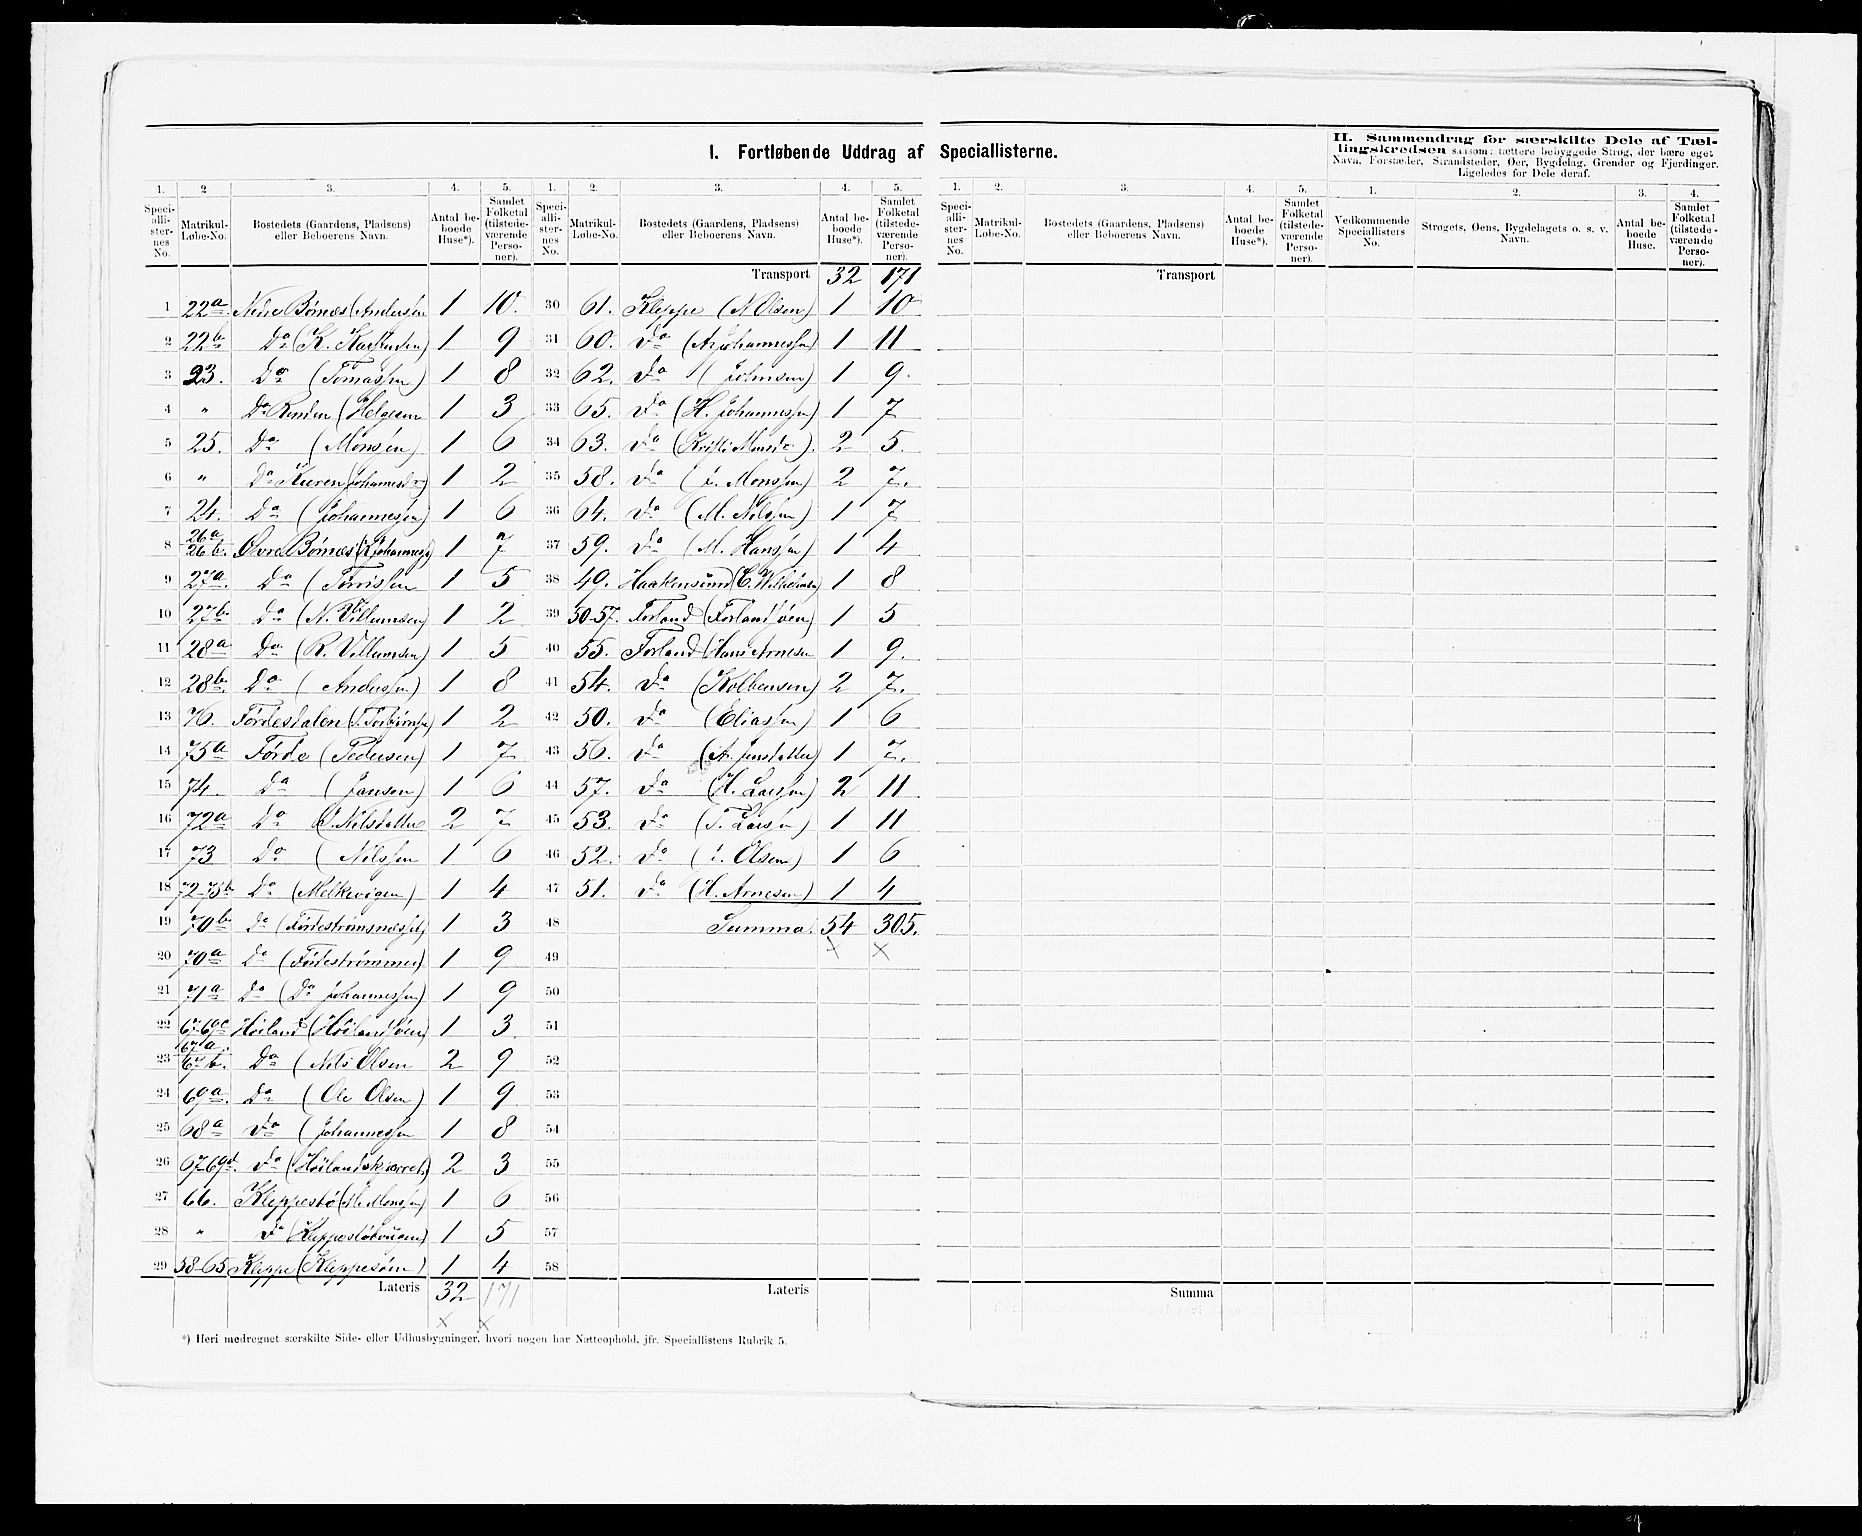 I. Fortløbende Uddrag af Speciallisterne.
II. Sammendrag for særskilte Dele af Tæl-
lingskredsen saasom: tættere bebyggede Strøg, der bære eget
Navn, Forstæder, Strandsteder, Øer, Bygdelag, Grender og Fjerdinger.
Ligeledes for Dele deraf.
1. 2 3. 4. 5. 1. 2. 3. 4. 5. 1. 2. 3. 4. 5. 1. 2. 3. 4.
Speci-alli-ster-nes No. Matrikul-Løbe-No. Bostedets (Gaardens, Pladsens) eller Beboerens Navn. Antal be-boede Huse*). Samlet Folketal (tilstede-værende Perso-ner).
Speci-alli-ster-nes No. Matrikul-Løbe-No. Bostedets (Gaardens, Pladsens) eller Beboerens Navn. Antal be-boede Huse*). Samlet Folketal (tilstede-værende Perso-ner).
Speci-alli-ster-nes No. Matrikul-Løbe-No. Bostedets (Gaardens, Pladsens) eller Beboerens Navn. Antal be-boede Huse*). Samlet Folketal (tilstede-værende Perso-ner).
Vedkommende Speciallisters No. Strøgets, Øens, Bygdelagets o. s. v. Navn. Antal be-boede Huse. Samlet Folketal (tilstede-værende Perso-ner).
Transport 32 171 Transport
1 22a Nedre Børnæs (Andersen 1 10. 30 61. Kleppe (N Olsen) 1 10
2 22b Do (K. Karstensen) 1 9 31 60. do (A Johannessen) 1 11
3 23. Do (Tomassen) 1 8 32 62. do (Johnsen) 1 9.
4 " Do (Helgesen 1 3 33 65. do (H. Johannessen) 1 7
5 25. Do (Monsen) 1 6 34 63. do (Kristi Monsdr). 2 5.
6 " Do 1 2 35 58. do (J. Monssen) 2 7.
7 24. Do (Johannessen) 1 6 36 64. do (M. Nilssen) 1 7
8 26a 26b. Øvre Børnæs (Johanness) 1 7 37 59. do (M. Hanssen) 1 4
9 27a. Do (Torrissen 1 5 38 49. Haakonsund 1 8
10 27b. Do (N. Villumsen) 1 2 39 50-57. Forland (Forlandsøen) 1 5
11 28a Do (R. Villumsen) 1 5 40 55. Forland (Hans Arnesen 1 9.
12 28b. Do (Anderssen) 1 8 41 54. do (Kolbensen) 2 7.
13 76. Førdesdalen 1 2 42 50. do (Eliassen) 1 6
14 75a Førde (Pedersen) 1 7 43 56. do (A. Jensdatter) 1 7.
15 74. Do (Jansen) 1 6 44 57. do (H. Larssen) 2 11
16 72a Do (Nilsdatter 2 7 45 53. do (T. Larssen) 1 11
17 73 Do (Nilssen 1 6 46 52. do (J. Olsen) 1 6
18 72-75b Do (Melkevigen) 1 4 47 51. do (H. Arnesen) 1 4
19 70b Do (Førdestrømsnæsset) 1 3 48 Summa. 54 305.
20 70a Do (Førdestrømmen) 1 9 49 × ×
21 71a Do (Do Johannessen) 1 9 50
22 67-69c Høiland (Høilandsøen) 1 3. 51
23 67a. 67b. Do (Nils Olsen 2 9 52
24 69a. Do (Ole Olsen) 1 9 53
25 68a do (Johannessen 1 8 54
26 67-69d. do (Høilandskjærret) 2 3 55
27 66. Kleppestø (M. Monssen) 1 6 56
28 " do (Kleppestøvaagen) 1 5 57
29 58-65 Kleppe (Kleppesøen) 1 4 58
Lateris 32 171 Lateris Summa
× ×
*) Heri medregnet særskilte Side- eller Udhusbygninger, hvori nogen har Natteophold, jfr. Speciallistens Rubrik 5.